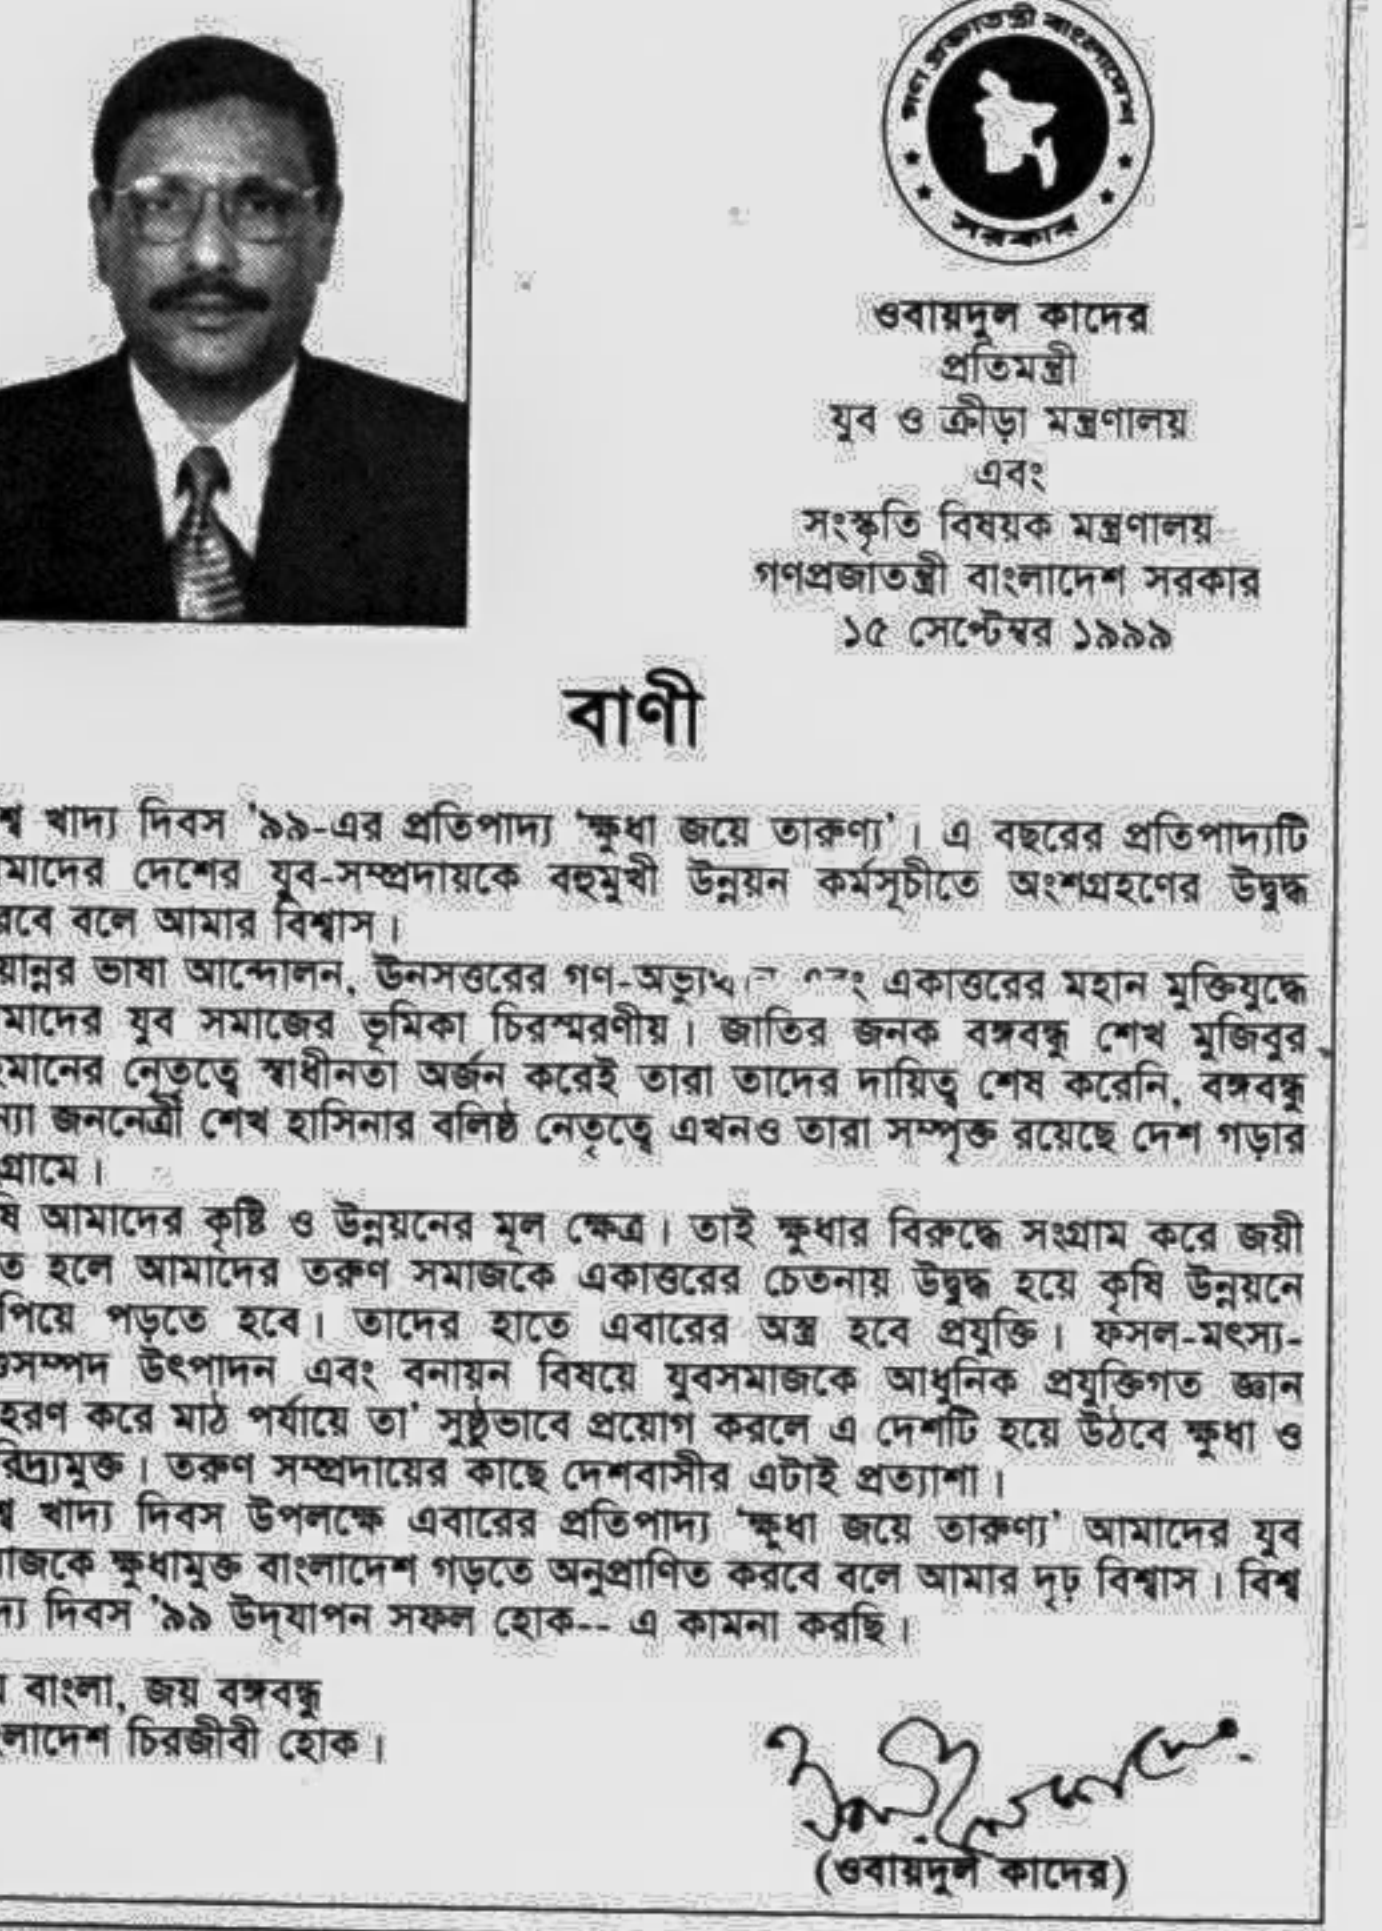 গণ প্রজাতন্ত্রী বাংলাদেশ
সরকার
ওবায়দুল কাদের
প্রতিমন্ত্রী
যুব ও ক্রীড়া মন্ত্রণালয়
এবং
সংস্কৃতি বিষয়ক মন্ত্রণালয়
গণপ্রজাতন্ত্রী বাংলাদেশ সরকার
১৫ সেপ্টেম্বর ১৯৯৯
বাণী
শ্ব খাদ্য দিবস '৯৯-এর প্রতিপাদ্য 'ক্ষুধা জয়ে তারুণ্য'। এ বছরের প্রতিপাদ্যটি
মাদের দেশের যুব-সম্প্রদায়কে বহুমুখী উন্নয়ন কর্মসূচীতে অংশগ্রহণের উদ্বুদ্ধ
রবে বলে আমার বিশ্বাস।
য়ান্নর ভাষা আন্দোলন, ঊনসত্তরের একাত্তরের মহান মুক্তিযুদ্ধে
মাদের যুব সমাজের ভূমিকা চিরস্মরণীয়। জাতির জনক বঙ্গবন্ধু শেখ মুজিবুর
হমানের নেতৃত্বে স্বাধীনতা অর্জন করেই তারা তাদের দায়িত্ব শেষ করেনি, বঙ্গবন্ধু
ন্যা জননেত্রী শেখ হাসিনার বলিষ্ঠ নেতৃত্বে এখনও তারা সম্পৃক্ত রয়েছে দেশ গড়ার
গ্রামে।
ষি আমাদের কৃষ্টি ও উন্নয়নের মূল ক্ষেত্র। তাই ক্ষুধার বিরুদ্ধে সংগ্রাম করে জয়ী
ত হলে আমাদের তরুণ সমাজকে একাত্তরের চেতনায় উদ্বুদ্ধ হয়ে কৃষি উন্নয়নে
পিয়ে পড়তে হবে। তাদের হাতে এবারের অস্ত্র হবে প্রযুক্তি। ফসল-মৎস্য-
সম্পদ উৎপাদন এবং বনায়ন বিষয়ে যুবসমাজকে আধুনিক প্রযুক্তিগত জ্ঞান
হরণ করে মাঠ পর্যায়ে তা' সুষ্ঠুভাবে প্রয়োগ করলে এ দেশটি হয়ে উঠবে ক্ষুধা ও
রিদ্র্যমুক্ত। তরুণ সম্প্রদায়ের কাছে দেশবাসীর এটাই প্রত্যাশা।
শ্ব খাদ্য দিবস উপলক্ষে এবারের প্রতিপাদ্য 'ক্ষুধা জয়ে তারুণ্য' আমাদের যুব
মাজকে ক্ষুধামুক্ত বাংলাদেশ গড়তে অনুপ্রাণিত করবে বলে আমার দৃঢ় বিশ্বাস। বিশ্ব
দ্য দিবস '৯৯ উদ্‌যাপন সফল হোক-- এ কামনা করছি।
য় বাংলা, জয় বঙ্গবন্ধু
ংলাদেশ চিরজীবী হোক।
(ওবায়দুল কাদের)